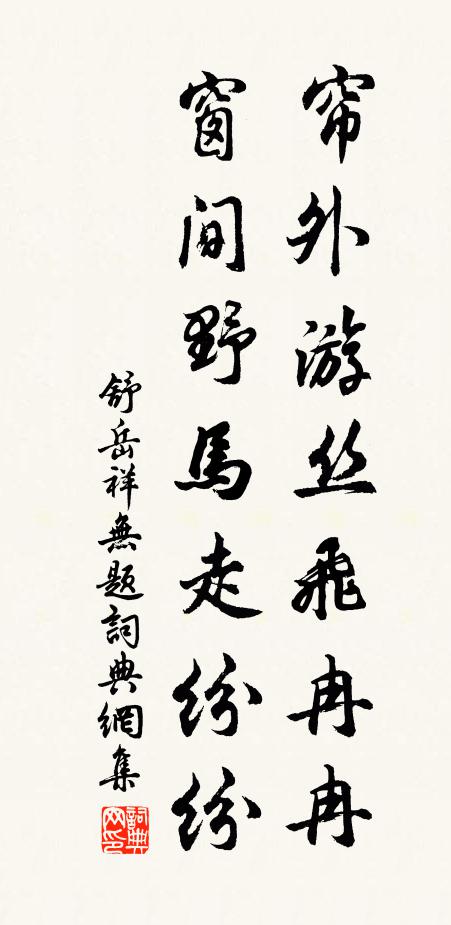 帘外游丝飛冉冉
窗間野馬走紛紛
舒岳祥無題詞典網集
詞典网印